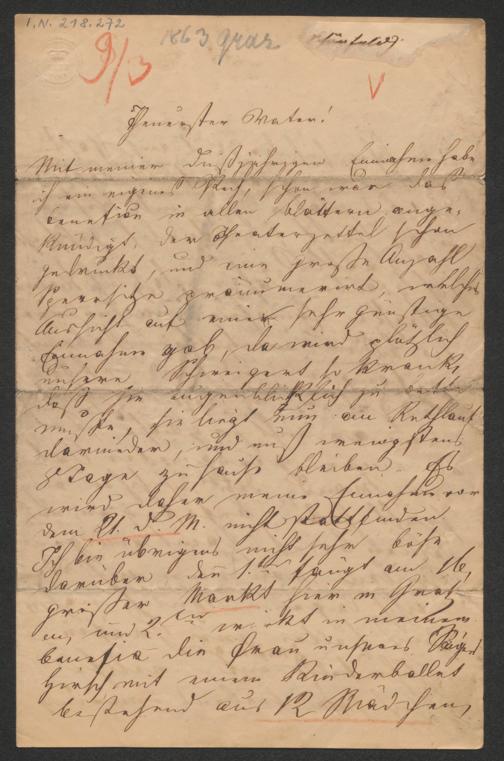 I.N. 218.272
9/3
1863 Graz
V
Theuerster Vater!
Mit meiner dießjährigen Einnahme habe
ich ein eigenes Pech, schon war das
Benefice in allen Blättern ange-
kündigt, der Theaterzettel schon
gedruckt, und eine große Anzahl
Sperrsitze pränumerirt, welches
Aussicht auf eine sehr günstige
Einnahme gab, da wird plötzlich
unsere Schweigert so krank,
daß sie augenblicklich zu Bette
mußte, sie liegt nun an Rothlauf
darnieder, und muß wenigstens
8 Tage zu Hause bleiben. Es
wird daher meine Einnahme vor
dem 21. d. M. nicht stattfinden.
Ich bin übrigens nicht sehr böse
darüber denn 1. fängt am 16.
großer Markt hier in Graz
an, und 2. wirkt in meinem
Benefice die Frau unseres
Hirsch mit einem Kinderballet
bestehend aus 12 Mädchen,